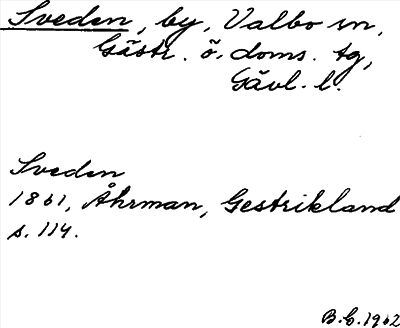 Sveden, by, Valbo sn,
Gästr. ö. doms. tg,
Gävl. l.
Sveden
1861, Åhrman, Gestrikland
s. 114.
B.E. 1962